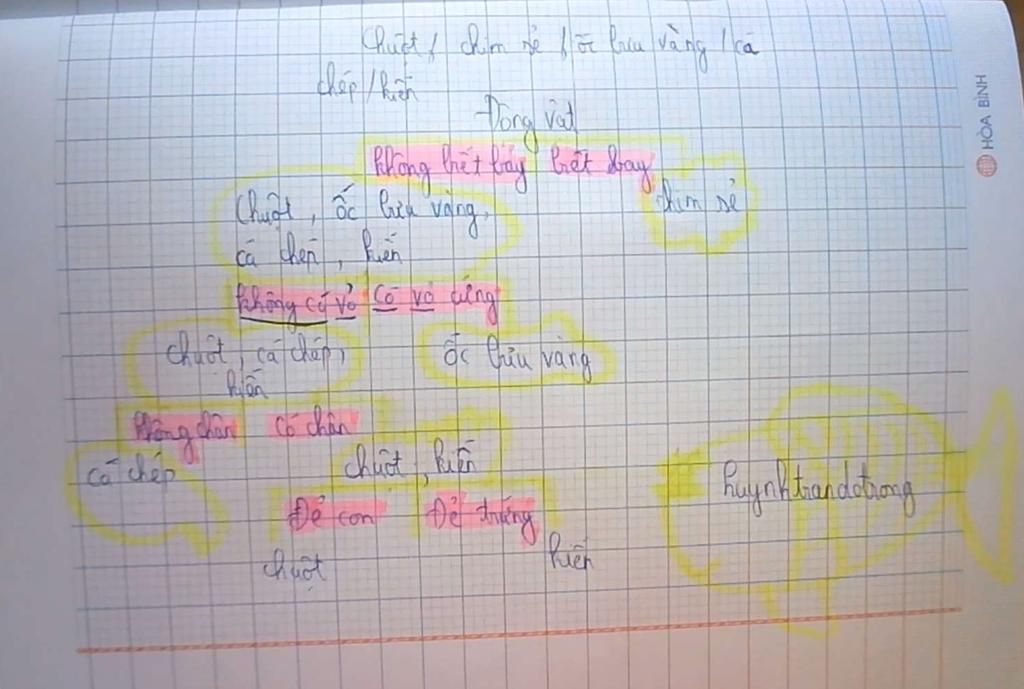 Chuột / chim sẻ / ốc bưu vàng / cá
chép / kiến
Động vật
Không biết bay biết bay
Chuột, ốc bưu vàng, chim sẻ
cá chép, kiến
không có vỏ có vỏ cứng
chuột, cá chép, ốc bưu vàng
kiến
không chân có chân
cá chép chuột, kiến
huynhtrandotrong
Đẻ con Đẻ trứng
chuột kiến
HÒA BÌNH